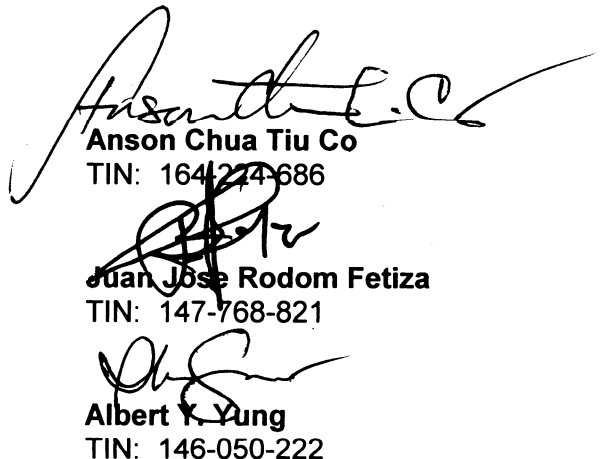 Anson Chua Tiu Co
TIN: 164-224-686
Juan Jose Rodom Fetiza
TIN: 147-768-821
Albert Y. Yung
TIN: 146-050-222